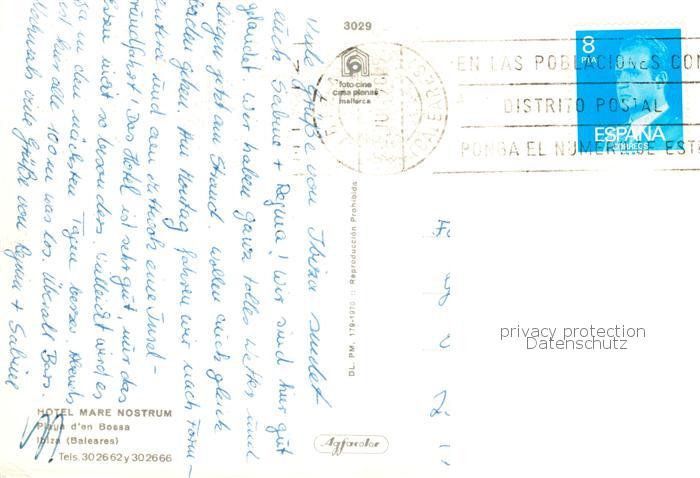 3029
foto-cine
casa planas
mallorca
8
PTA
ESPAÑA
CORREOS
EN LAS POBLACIONES CON
DISTRITO POSTAL
PONGA EL NUMERO DE ESTE
Viele Grüße von Ibiza sendet
euch Sabine + Regina! Wir sind hier gut
gelandet. Wir haben ganz tolles Wetter und
liegen jetzt am Strand. wollen auch gleich
baden gehen. Am Montag fahren wir nach Form-
entera und am Mittwoch eine Insel-
rundfahrt! Das Hotel ist sehr gut, nur das
Essen nicht so besonders. vielleicht wird es
ja in den nächsten Tagen besser. Abends
ist hier alle 100 m was los. Überall Bars.
Nochmals viele Grüße von Regina + Sabine
DL. PM. 179-1970 :: Reproducción Prohibida
HOTEL MARE NOSTRUM
Playa d'en Bossa
Ibiza (Baleares)
Tels. 302662 y 302666
Agfacolor
privacy protection
Datenschutz